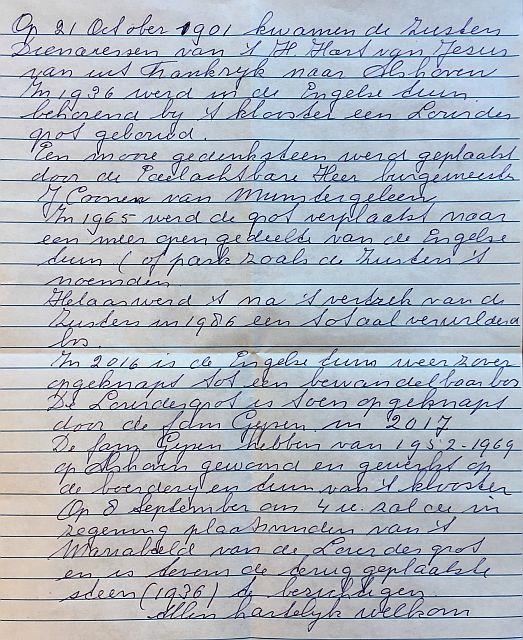 Op 21 October 1901 kwamen de Zusters
Dienaressen van 't H. Hart van Jesus
van uit Frankryk naar Alshoven
In 1936 werd in de Engelse tuin
behorend by 't klooster een Lourdes
grot gebouwd.
Een mooie gedenksteen werd geplaatst
door de Edelachtbare Heer burgemeester
J Coonen van Munstergeleen
In 1965 werd de grot verplaatst naar
een meer open gedeelte van de Engelse
tuin (of park zoals de Zusters 't
noemden
Helaas werd 't na 't vertrek van de
Zusters in 1986 een totaal verwilderd
bos.
In 2016 is de Engelse tuin weer zover
opgeknapt tot een bewandelbaar bos
De Lourdesgrot is toen opgeknapt
door de fam Gypen in 2017
De fam Gypen hebben van 1952-1969
op gewoond en gewerkt op
de boerdery en tuin van 't klooster
Op 8 September om 4 u. zal de in
zegening plaatsvinden van 't
Mariabeeld van de Lourdesgrot
en is tevens de terug geplaatste
steen (1936) te bezichtigen.
Allen hartelyk welkom